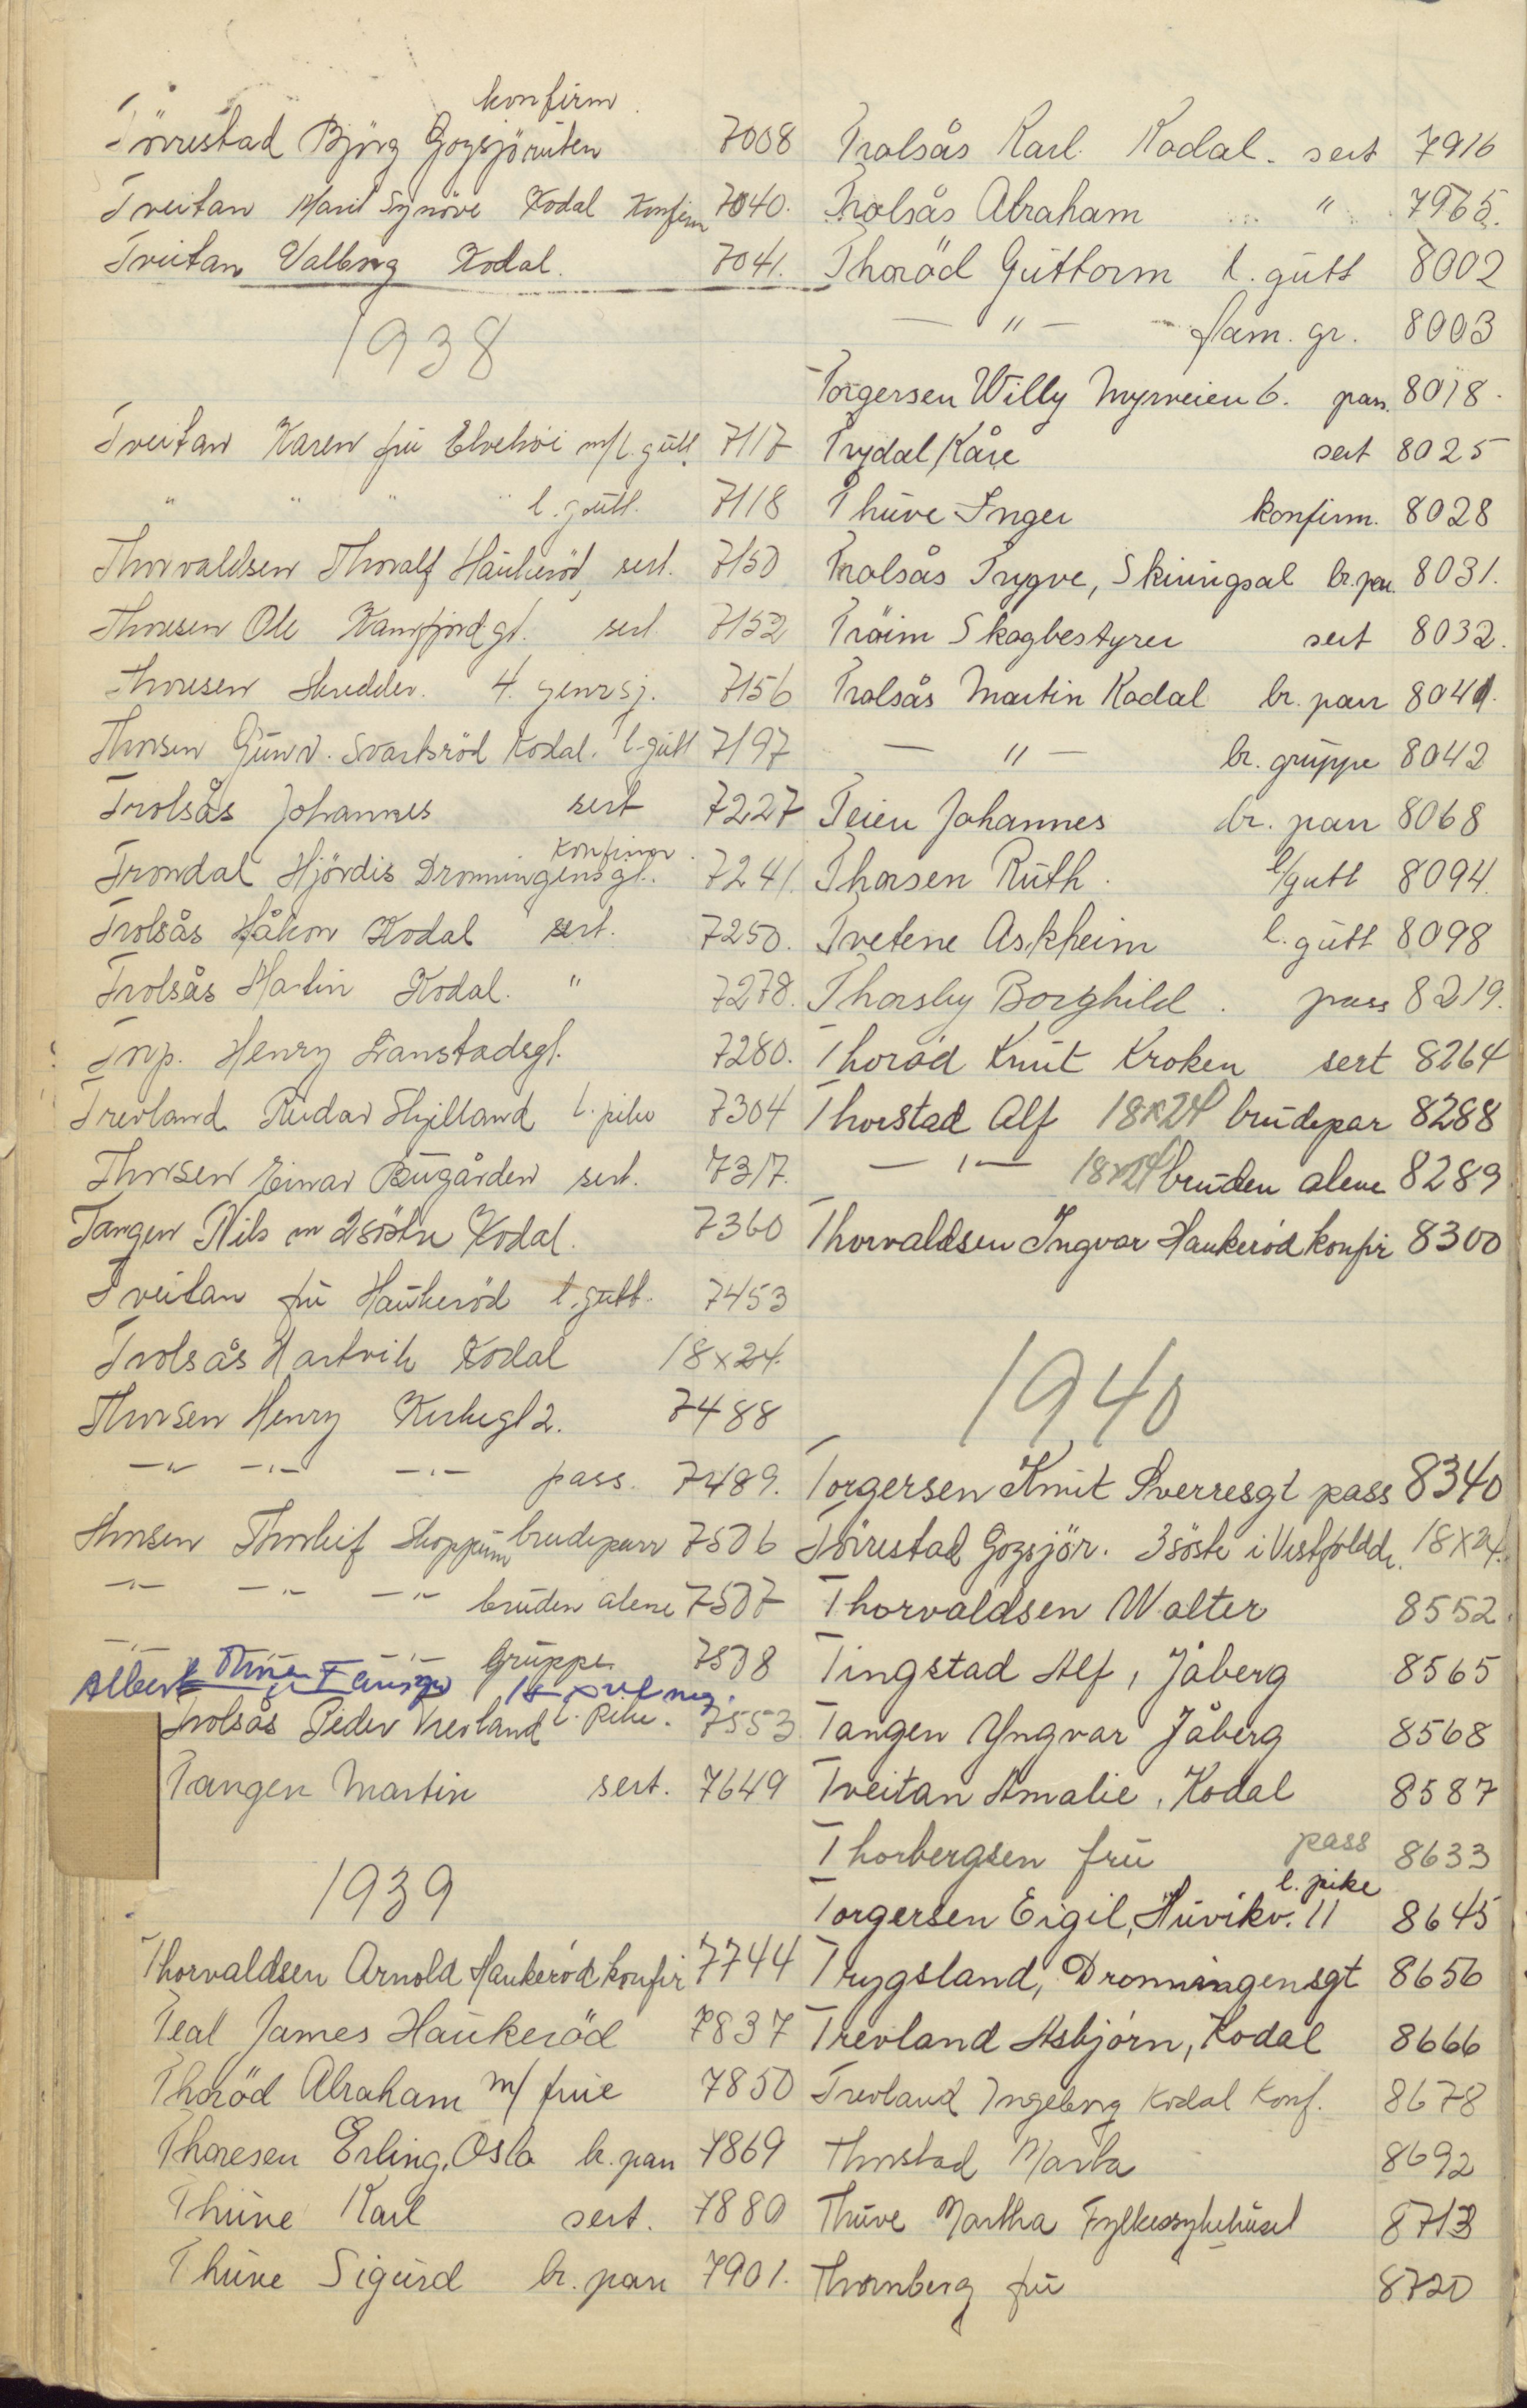 konfirm.
Törrestad Björg Gogsjöruten 7008
Tveitan Marit Synöve Kodal Konfirm 7040.
Tveitan Valborg Kodal. 7041.
1938
Tveitan Karen fru Elvehöi m/l. gutt. 7117
" " " " l. gutt. 7118
Thorvaldsen Thoralf Haukeröd, sert. 7150
Thoresen Ole Kamfjordgt. sert 7152
Thoresen Skredder. 4. gen 7156
Thorsen Gunv. Svartsröd Kodal. l-gutt 7197
Trolsås Johannes sert 7227
Konfirm.
Trondal Hjördis Dronningensgt. 7241.
Trolsås Håkon Kodal sert. 7250.
Trolsås Martin Kodal. " 7278.
Henry 7280.
Trevland Reidar l. pike 7304
Thorsen Einar Bugården sert. 7317.
Tangen Nils m 2 söstre Kodal. 7360
Tveitan fru Haukeröd l. gutt. 7453
Trolsås Hartvik Kodal 18x24.
Thorsen Henry Kirkegt 2. 7488
-"- -"- -"- pass. 7489.
Thorsen Thorleif Skoppum brudeparr 7506
-"- -"- -"- bruden alene 7507
-"- -"- -"- Gruppe 7508
Albert
Trolsås Peder Trevland l. Pike. 7553
Tangen Martin sert. 7649
1939
Thorvaldsen Arnold Haukeröd konfir 7744
Teal James Haukeröd 7837
Thoröd Abraham m/ frue 7850
Thoresen Erling, Oslo br. parr 7869
Thune Karl sert. 7880
Thune Sigurd br. parr 7901.
Trolsås Karl. Kodal. sert 7916
Trolsås Abraham " 7965.
Thoröd Guttorm l. gutt 8002
— " — fam. gr. 8003
Torgersen Willy Myrveien 6. pass. 8018.
Trydal Kåre sert 8025
Thuve Inger konfirm. 8028
Trolsås Trygve, Skiringsal br. par. 8031.
Tröim Skogbestyrer sert 8032.
Trolsås Martin Kodal br. parr 8041.
— " — br. gruppe 8042
Teien Johannes br. parr 8068
Thorsen Ruth. l/gutt 8094.
Tvetene Askheim l. gutt 8098
Thorsby Borghild. pass 8219.
Thoröd Knut Kroken sert 8264
Thorstad Alf 18x24 brudepar 8288
— " — 18x24 bruden alene 8289
Thorvaldsen Ingvar Haukeröd konfir 8300
1940
Torgersen Knut Sverresgt pass 8340
Törrestad Gogsjör. 3 söstr i Vestfoldd. 18x24.
Thorvaldsen Walter 8552.
Tingstad Alf, Jåberg 8565
Tangen Yngvar Jåberg 8568
Tveitan Amalie, Kodal 8587
Thorbergsen fru pass 8633
l. pike
Torgersen Eigil, Huvikv. 11 8645
Trygsland, Dronningensgt 8656
Trevland Asbjörn, Kodal 8666
Trevland Ingeborg Kodal Konf. 8678
Thorstad Marta 8692
Thuve Martha Fylkessykehuset 8713
Thornberg fru 8720